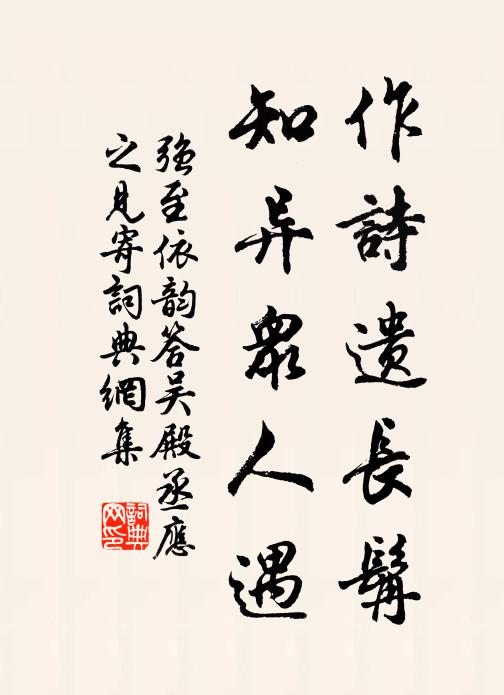 作詩遺長髯
知异衆人遇
強至依韵答吴殿丞應
之見寄詞典網集
詞典
网印